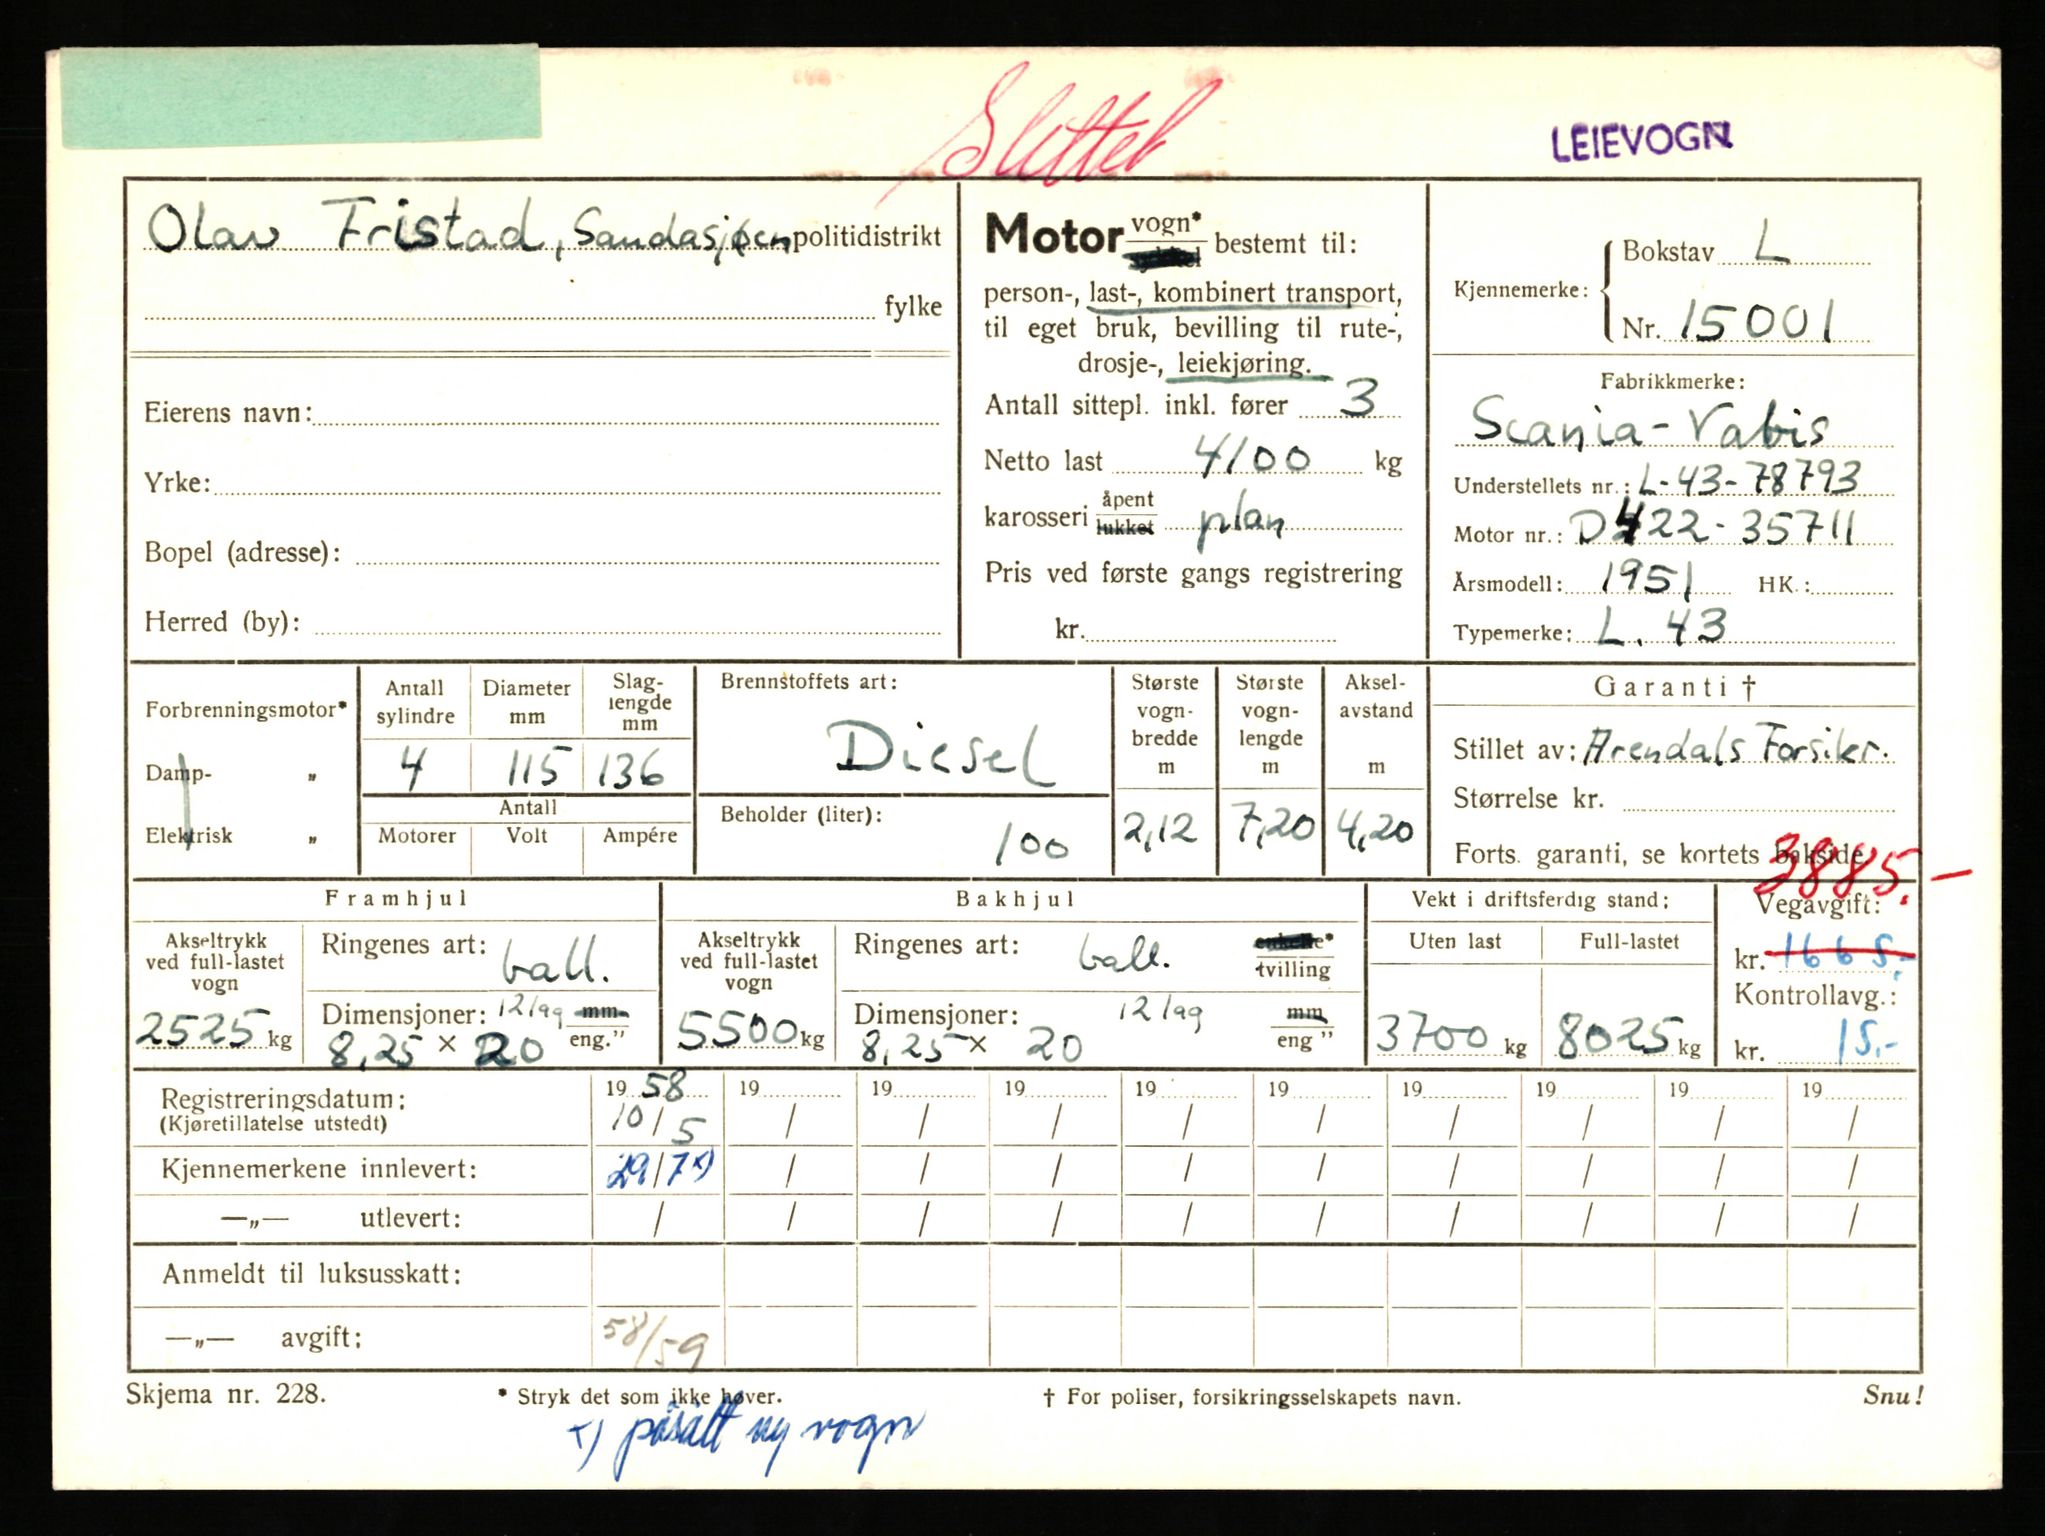 Slettet
LEIEVOGN
Olav Fristad, Sandasjøen politidistrikt
fylke
Eierens navn:
Yrke:
Bopel (adresse):
Herred (by):
Motor vogn* bestemt til:
person-, last-, kombinert transport,
til eget bruk, bevilling til rute-,
drosje-, leiekjøring.
Antall sittepl. inkl. fører 3
Netto last 4100 kg
karosseri åpent lukket plan
Pris ved første gangs registrering
kr.
Kjennemerke: Bokstav L
Nr. 15001
Fabrikkmerke:
Scania-Vabis
Understellets nr.: L-43-78793
Motor nr.: D422-35711
Årsmodell: 1951 HK.:
Typemerke: L.43
Forbrenningsmotor*
Damp- „
Elektrisk „
Antall sylindre 4
Diameter mm 115
Slag-lengde mm 136
Antall
Motorer Volt Ampére
Brennstoffets art:
Diesel
Beholder (liter):
100
Største vogn-bredde m 2,12
Største vogn-lengde m 7,20
Aksel-avstand m 4,20
Garanti †
Stillet av: Arendals Forsikr.
Størrelse kr.
Forts. garanti, se kortets bakside.
Framhjul
Akseltrykk ved full-lastet vogn
2525 kg
Ringenes art: ball.
Dimensjoner: 12 lag mm eng."
8,25 × 20
Bakhjul
Akseltrykk ved full-lastet vogn
5500 kg
Ringenes art: ball. enkelte* tvilling
Dimensjoner: 12 lag mm eng"
8,25 × 20
Vekt i driftsferdig stand:
Uten last Full-lastet
3700 kg 8025 kg
3885.-
Vegavgift:
kr. 1665.-
Kontrollavg.:
kr. 15.-
Registreringsdatum: 19 58 19 19 19 19 19 19 19 19 19
(Kjøretillatelse utstedt) 10/5 / / / / / / / / /
Kjennemerkene innlevert: 29/7 x) / / / / / / / / /
—„— utlevert: / / / / / / / / / /
Anmeldt til luksusskatt:
—„— avgift: 58/59
Skjema nr. 228. * Stryk det som ikke høver. † For poliser, forsikringsselskapets navn. Snu!
x) påsatt ny vogn